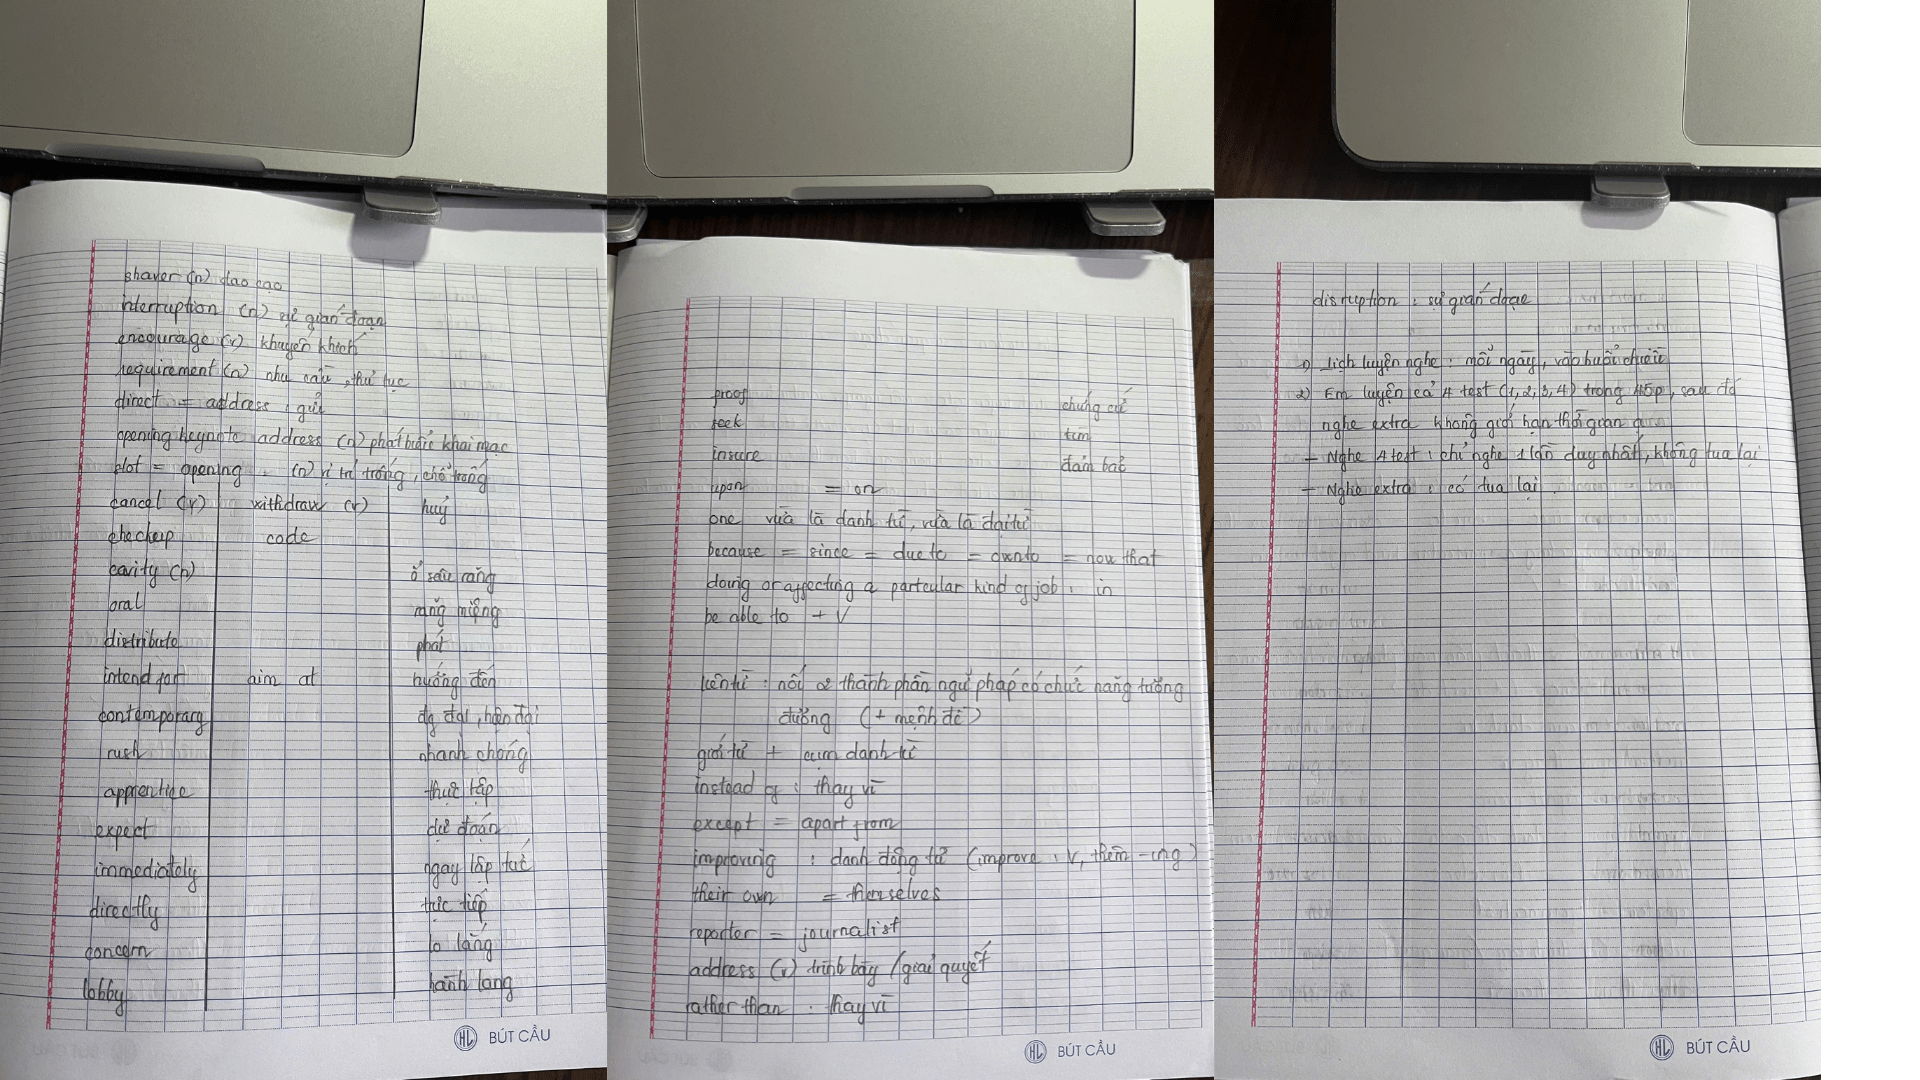 shaver (n) dao cạo
interruption (n) sự gián đoạn
encourage (v) khuyến khích
requirement (n) nhu cầu, thủ tục
direct = address : gửi
opening keynote address (n) phát biểu khai mạc
slot = opening : (n) vị trí trống, chỗ trống
cancel (v) withdraw (v) huỷ
checkup code
cavity (n) ổ sâu răng
oral răng miệng
distribute phát
intend for aim at hướng đến
contemporary đại, hiện đại
rush nhanh chóng
apprentice thực tập
expect dự đoán
immediately ngay lập tức
directly trực tiếp
concern lo lắng
lobby hành lang
BÚT CẦU
proof chứng cứ
seek tìm
insure đảm bảo
upon = on
one vừa là danh từ, vừa là đại từ
because = since = due to = own to = now that
doing or affecting a partcular kind of job : in
be able to + V
liên từ : nối 2 thành phần ngữ pháp có chức năng tương
đương (+ mệnh đề)
giới từ + cụm danh từ
instead of : thay vì
except = apart from
improving : danh động từ (improve : V, thêm -ing)
their own = themselves
reporter = journalist
address (v) trình bày / giải quyết
rather than : thay vì
BÚT CẦU
disruption : sự gián đoạn
1) Lịch luyện nghe : mỗi ngày, vào buổi chiều
2) Em luyện cả 4 test (1, 2, 3, 4) trong 45p, sau đó
nghe extra không giới hạn thời gian ạ
- Nghe 4 test : chỉ nghe 1 lần duy nhất, không tua lại
- Nghe extra : có tua lại.
BÚT CẦU